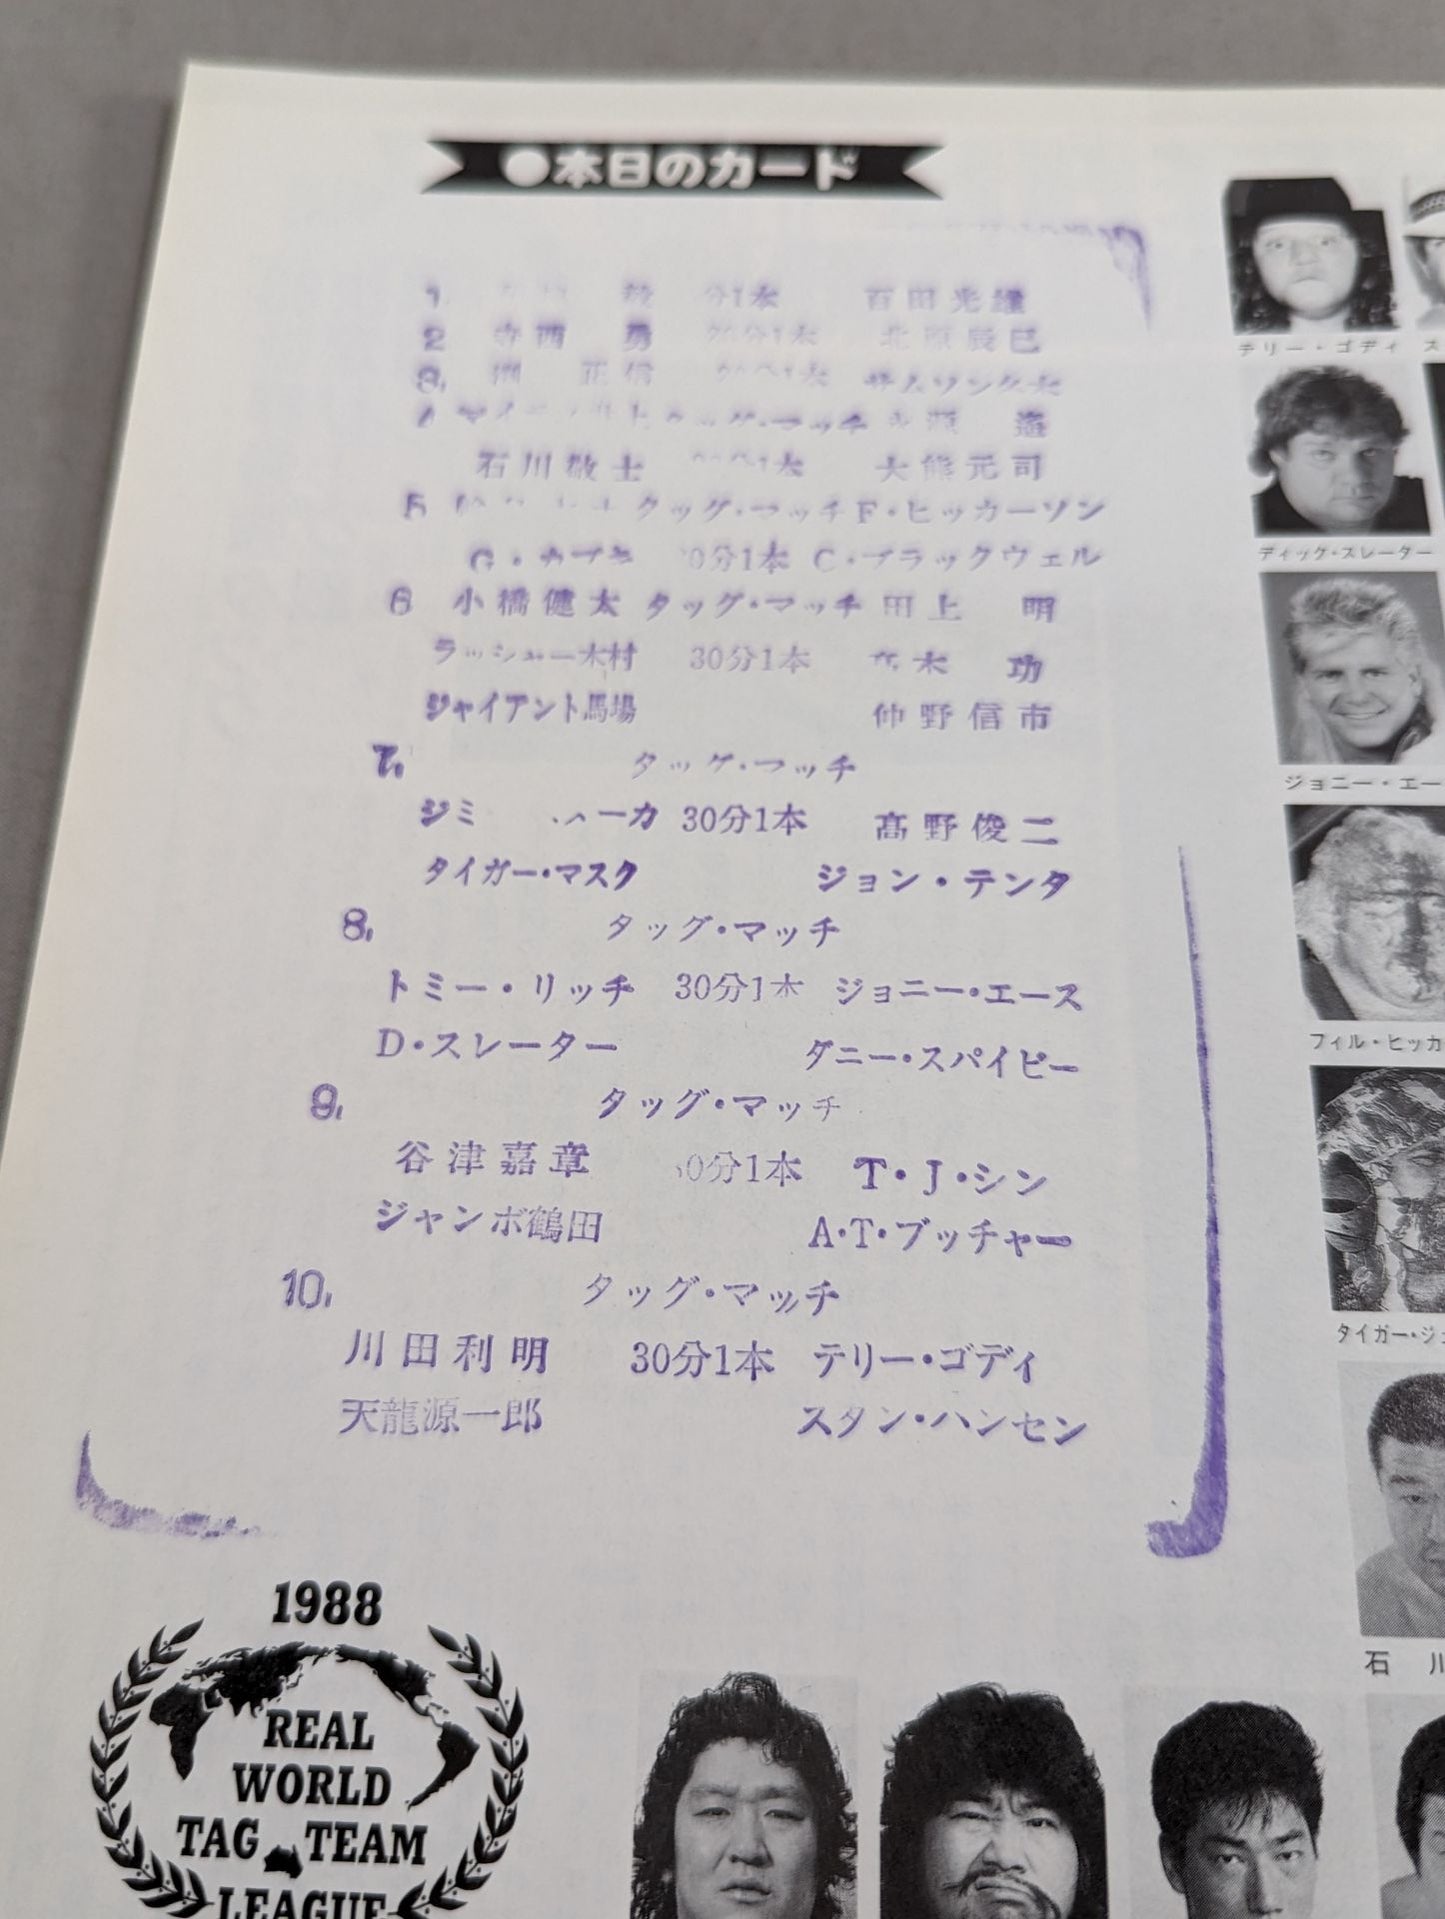 ●本日のカード
1. 毅 分1本 百田光雄
2 寺西 勇 分1本 北原辰巳
3. 淵 正信
タッグ・マッチ
石川敬士 大熊元司
5 タッグ・マッチ F・ヒッカーソン
G・カブキ 0分1本 C・ブラックウェル
6 小橋健太 タッグ・マッチ 田上 明
ラッシャー木村 30分1本 高木 功
ジャイアント馬場 仲野信市
7. タッグ・マッチ
ジミ ーカ 30分1本 高野俊二
タイガー・マスク ジョン・テンタ
8. タッグ・マッチ
トミー・リッチ 30分1本 ジョニー・エース
D・スレーター ダニー・スパイビー
9. タッグ・マッチ
谷津嘉章 30分1本 T・J・シン
ジャンボ鶴田 A・T・ブッチャー
10. タッグ・マッチ
川田利明 30分1本 テリー・ゴディ
天龍源一郎 スタン・ハンセン
1988
REAL
WORLD
TAG TEAM
LEAGUE
テリー・ゴディ ス
ディック・スレーター
ジョニー・エー
フィル・ヒッカ
タイガー・ジ
石 川